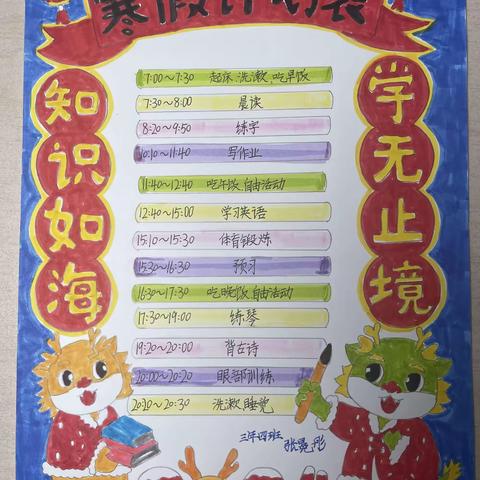 寒假计划表
知识如海
学无止境
7:00～7:30 起床、洗漱、吃早饭
7:30～8:00 晨读
8:20～9:50 练字
10:10～11:40 写作业
11:40～12:40 吃午饭 自由活动
12:40～15:00 学习英语
15:10～15:30 体育锻炼
15:30～16:30 预习
16:30～17:30 吃晚饭 自由活动
17:30～19:00 练琴
19:20～20:00 背古诗
20:00～20:20 眼部训练
20:20～20:30 洗漱 睡觉
三年四班